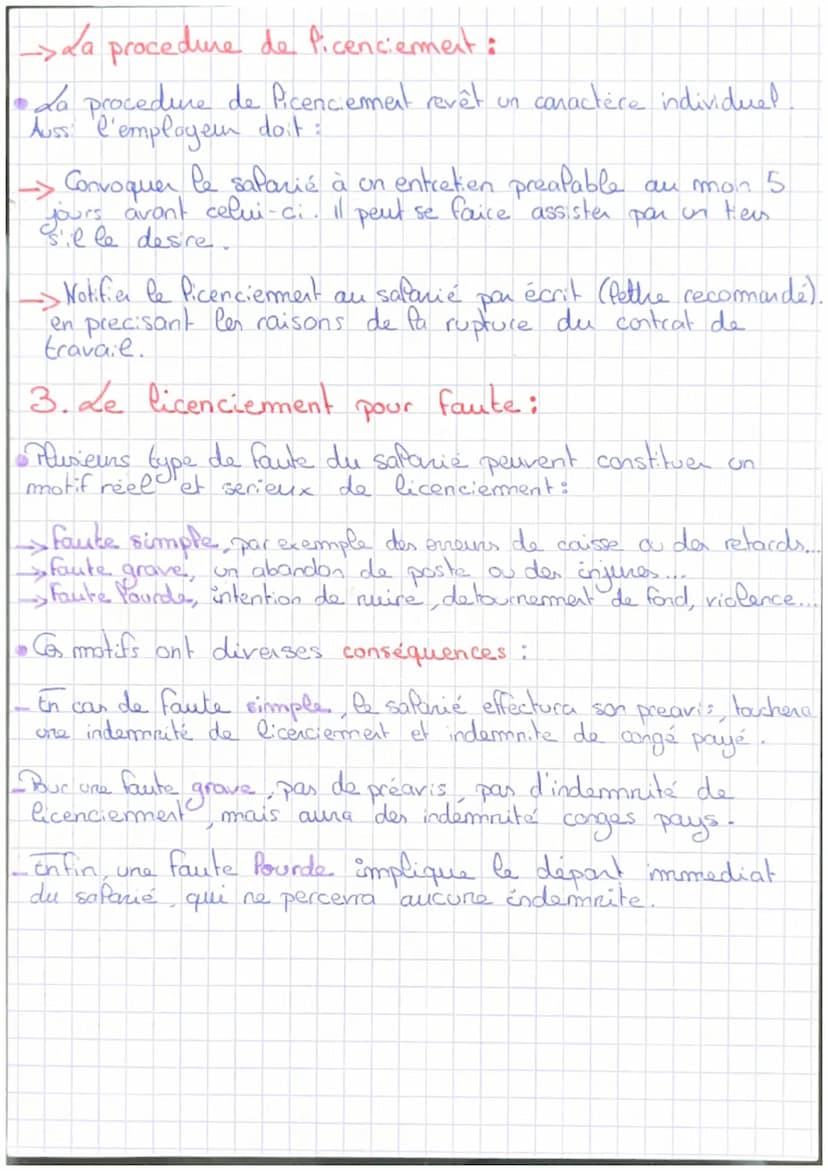 → La procedure de licenciement :
• La procedure de licenciement revêt un caractère individuel.
Aussi l'employeur doit :
→ Convoquer le salarié à un entretien prealable au moin 5
jours avant celui-ci. il peut se faire assister par un tiers
s'il le desire.
→ Notifier le licenciement au salarié par écrit (lettre recomandé).
en precisant les raisons de la rupture du contrat de
travail.
3. Le licenciement pour faute :
• Plusieurs type de faute du salarié peuvent constituer un
motif réel et serieux de licenciement :
→ faute simple, par exemple des erreurs de caisse ou des retards...
→ faute grave, un abandon de poste ou des injures...
→ Faute lourde, intention de nuire, detournement de fond, violence...
• Ces motifs ont diverses conséquences :
- En cas de faute simple, le salarié effectura son preavis, touchera
une indemnité de licenciement et indemnite de congé payé.
- Pour une faute grave, pas de préavis, pas d'indemnité de
licenciement, mais aura des indemnité conges pays.
- Enfin, une faute lourde implique le départ immediat
du salarié, qui ne percevra aucune indemnite.